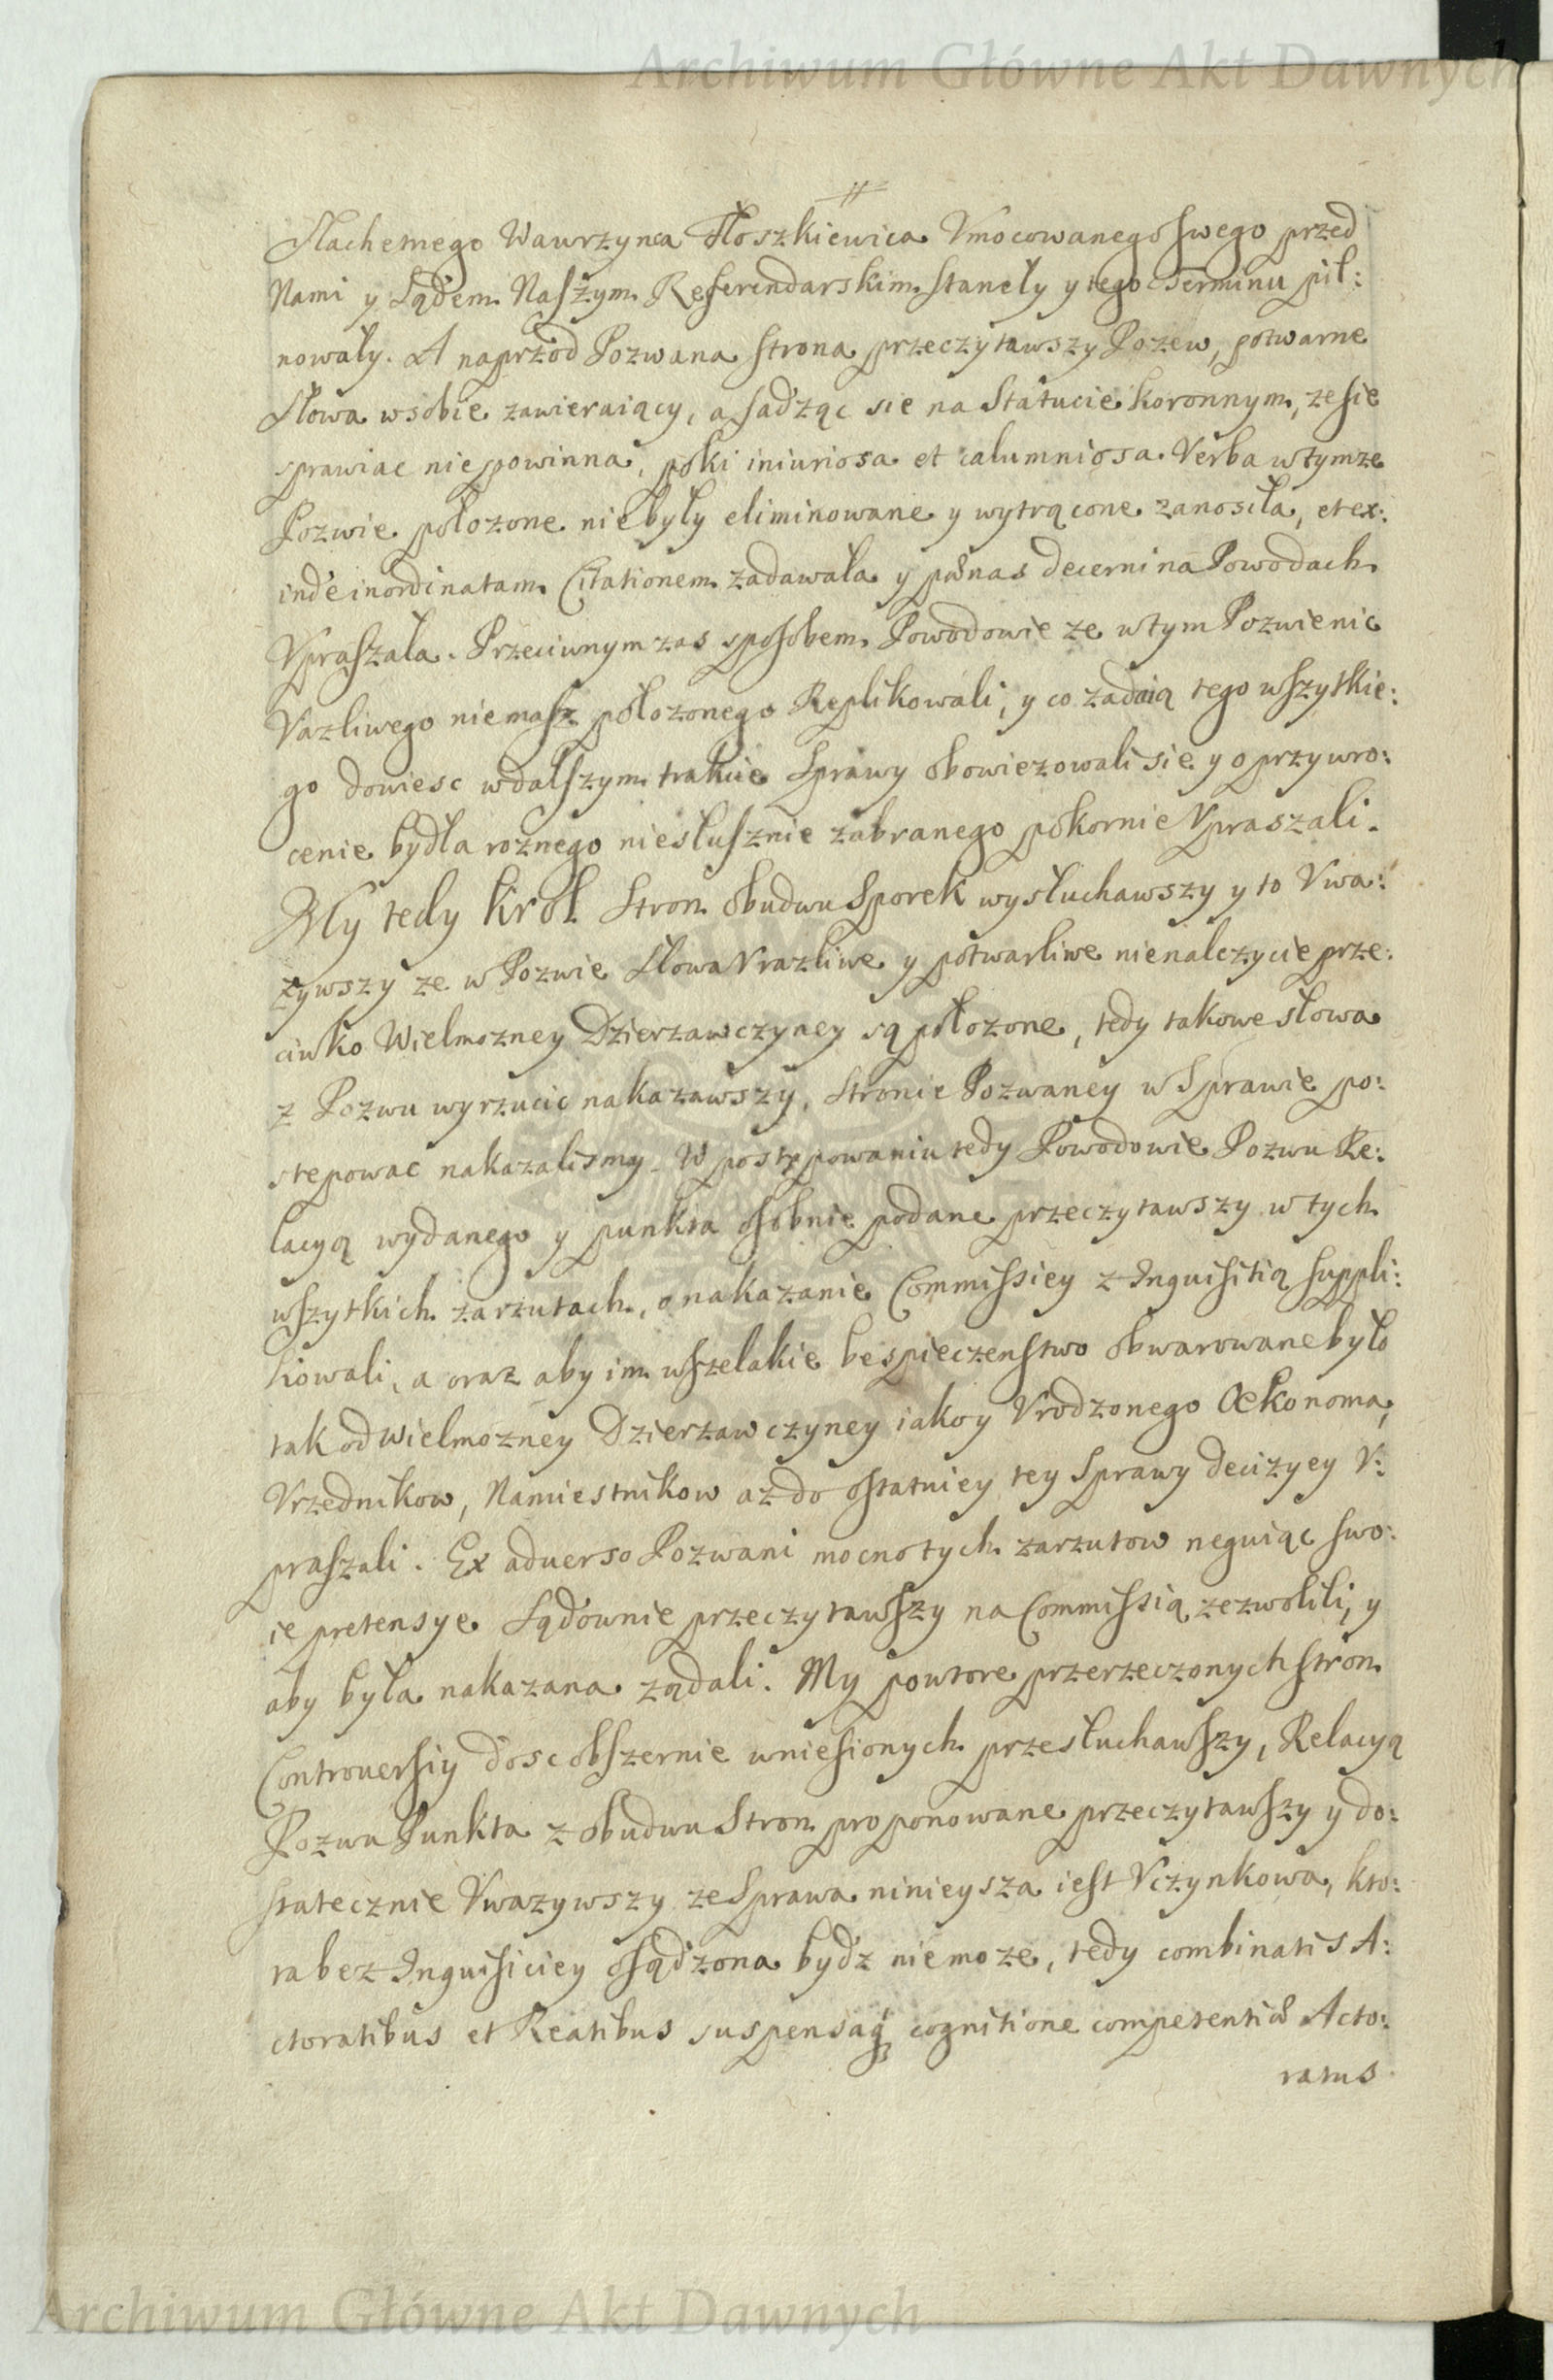 Archiwum Główne Akt Dawnych
Slachetnego Wawrzynca Tłoszkiewica Vmocowanego swego przed
Nami y Sądem Naszym Referendarskim stanęły y tego Terminu pil:
nowały. A naprzod Pozwana strona przeczytawszy Pozew, potwarne
Słowa w sobie zawieraiący, a sadząc się na Statucie koronnym, ze sie
sprawiac niepowinna, poki iniuriosa et calumniosa Verba w tymze
Pozwie połozone niebyły eliminowane y wytrącone zanosiła, et ex:
inde inordinatam Citationem zadawała y pænas decerni na Powodach
Vpraszała. Przeciwnym zas sposobem Powodowie ze w tym Pozwie nic
Vazliwego niemasz połozonego Replikowali, y co zadaią tego wszytkie:
go dowiesc w dalszym trakcie Sprawy obowiezowali sie y o przywro:
cenie bydła roznego niesłusznie zabranego pokornie Vpraszali.
My tedy Krol Stron obudwu Sporek wysłuchawszy y to Vwa:
zywszy ze w Pozwie Słowa Vrazliwe y potwarliwe nienalezycie prze:
ciwko Wielmozney Dzierzawczyney są połozone, tedy takowe słowa
z Pozwu wyrzucic nakazawszy, Stronie Pozwaney w Sprawie po:
stepowac nakazalismy. W postępowaniu tedy Powodowie Pozwu Re:
lacyą wydanego y punkta osobnie podane przeczytawszy w tych
wszytkich zarzutach, o nakazanie Commissiey z Inquisitią suppli:
kowali, a oraz aby im wszelakie bespieczenstwo obwarowane było
tak od Wielmozney Dzierzawczyney iako y Vrodzonego Oekonoma,
Vrzednikow, Namiestnikow az do ostatniey tey Sprawy decizyey V:
praszali. Ex aduerso Pozwani mocno tych zarzutow neguiąc swo:
ie pretensye Sądownie przeczytawszy na Commissią zezwolili, y
aby była nakazana ządali. My powtore przerzeczonych stron
Controuersiy dosc obszernie wniesionych przesłuchawszy, Relacyą
Pozwu Punkta z obudwu Stron proponowane przeczytawszy y do:
statecznie Vwazywszy ze Sprawa ninieysza iest Vczynkowa, kto:
ra bez Inquisiciey osądzona bydz niemoze, tedy combinatis A:
ctoratibus et Reatibus suspensaq; cognitione competentiæ Acto:
ratus
Archiwum Główne Akt Dawnych